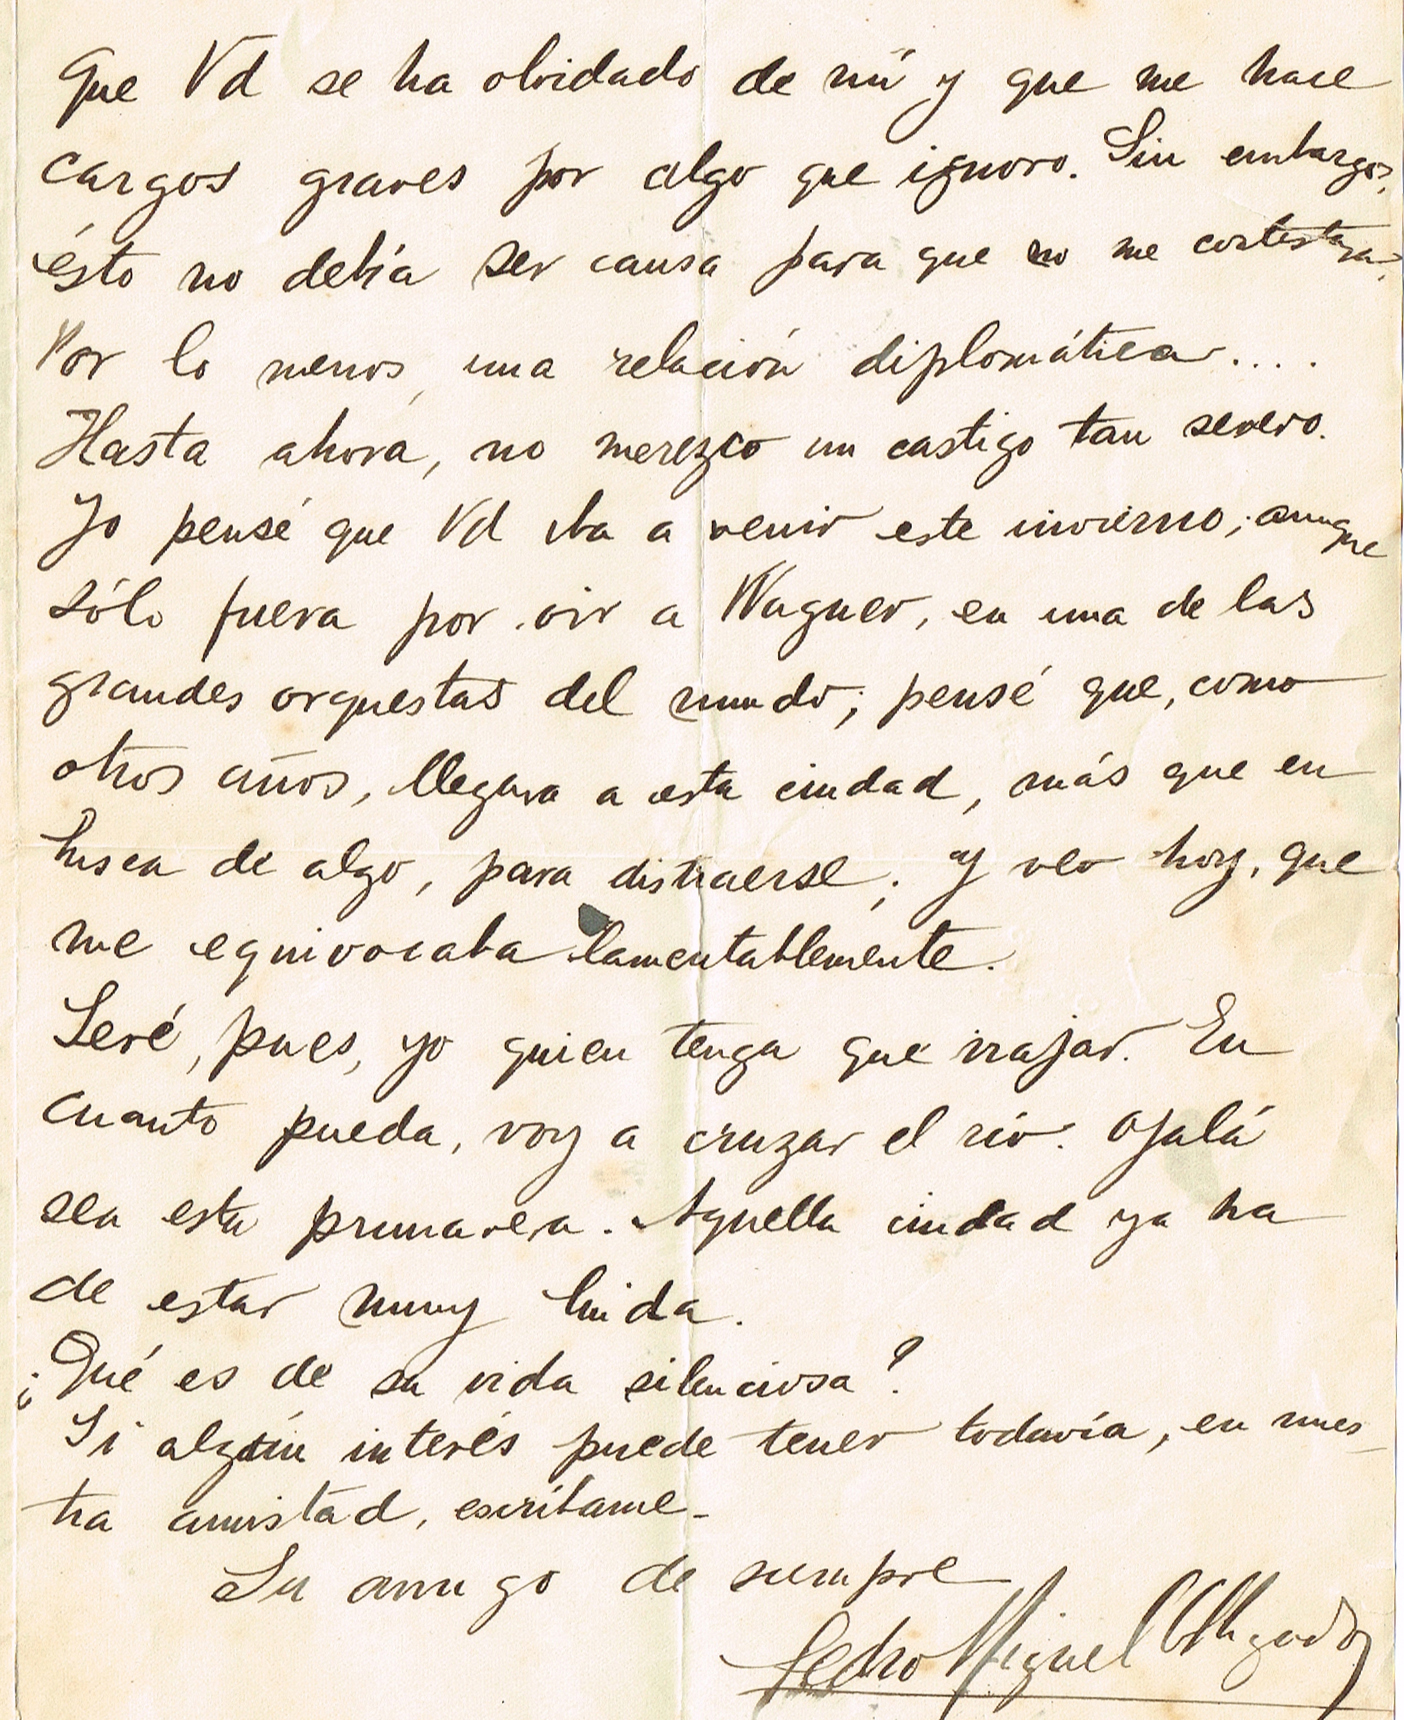 Que Vd se ha olvidado de mí y que me hace
cargos graves por algo que ignoro. Sin embargo,
ésto no debía ser causa para que no me contestara.
Por lo menos, una relación diplomática....
Hasta ahora, no merezco un castigo tan severo.
Yo pensé que Vd iba a venir este invierno; aunque
sólo fuera por oir a Wagner, en una de las
grandes orquestas del mundo; pensé que, como
otros años, llegara a esta ciudad, más que en
busca de algo, para distraerse; y veo hoy, que
me equivocaba lamentablemente.
Seré, pues, yo quien tenga que viajar. En
cuanto pueda, voy a cruzar el río. Ojalá
sea esta primavera. Aquella ciudad ya ha
de estar muy linda.
¿Qué es de su vida silenciosa?
Si algún interés puede tener todavía, en nues-
tra amistad, escríbame.
Su amigo de siempre
Pedro Miguel Obligado